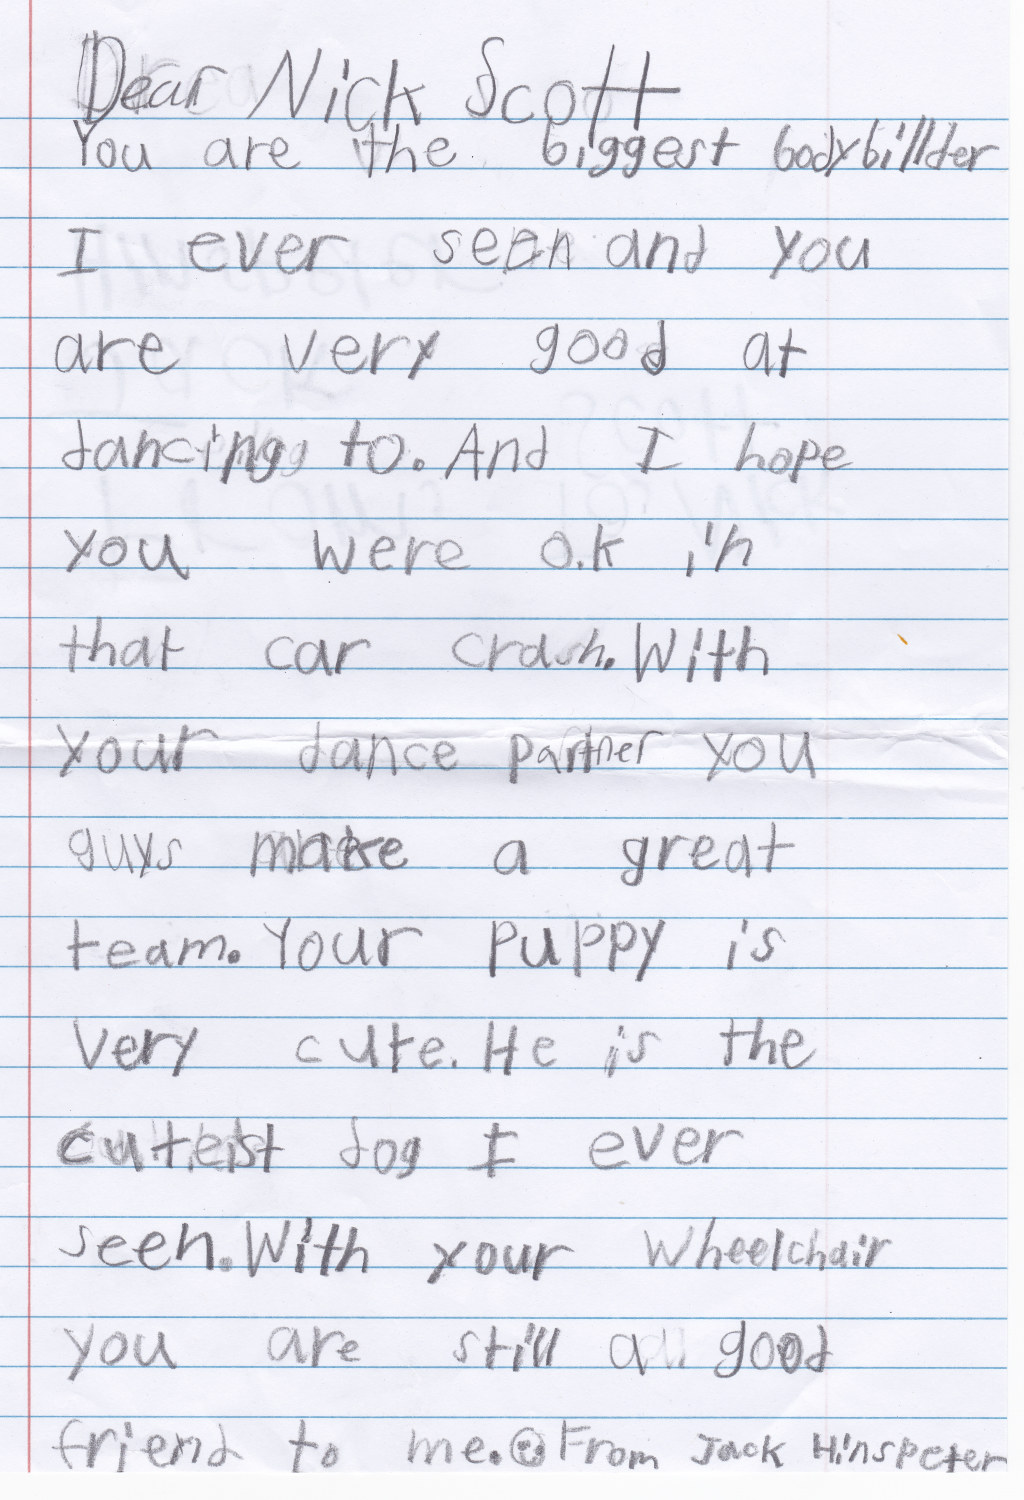 Dear Nick Scott
You are the biggest bodybillder
I ever seen and you
are very good at
dancing to. And I hope
you were o.k in
that car crash. With
your dance partner you
guys make a great
team. Your puppy is
very cute. He is the
cuteist dog I ever
seen. With your wheelchair
you are still a good
friend to me. From Jack Hinspeter